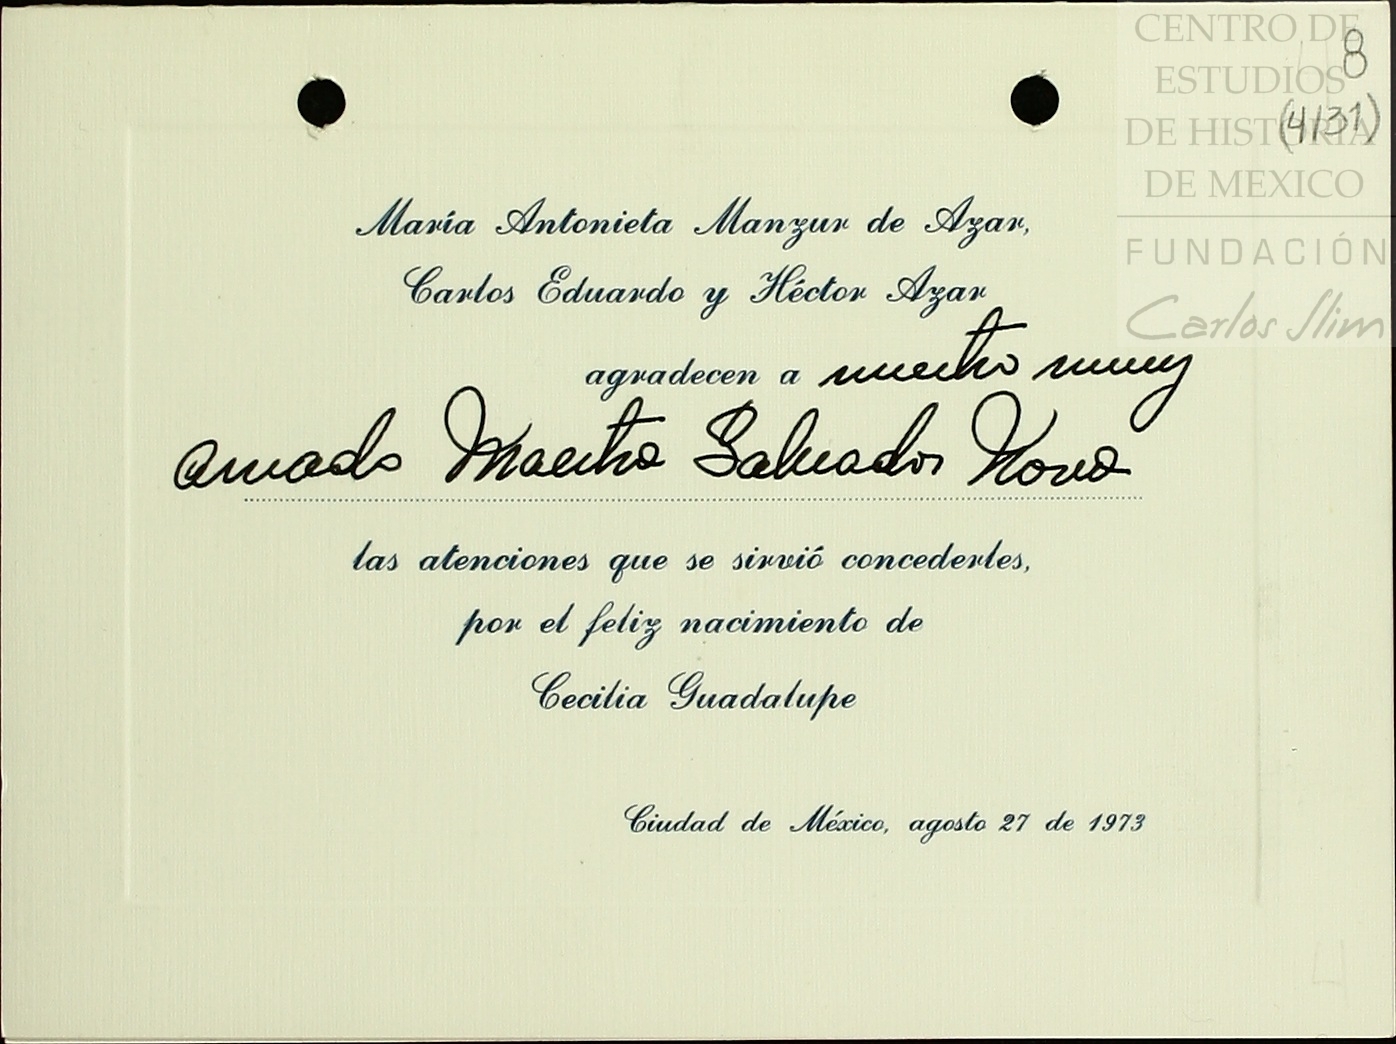 CENTRO DE
ESTUDIOS
DE HISTORIA
DE MEXICO
FUNDACIÓN
Carlos Slim
8
(4131)
María Antonieta Manzur de Azar,
Carlos Eduardo y Héctor Azar
agradecen a nuestro muy
amado Maestro Salvador Novo
las atenciones que se sirvió concederles,
por el feliz nacimiento de
Cecilia Guadalupe
Ciudad de México, agosto 27 de 1973